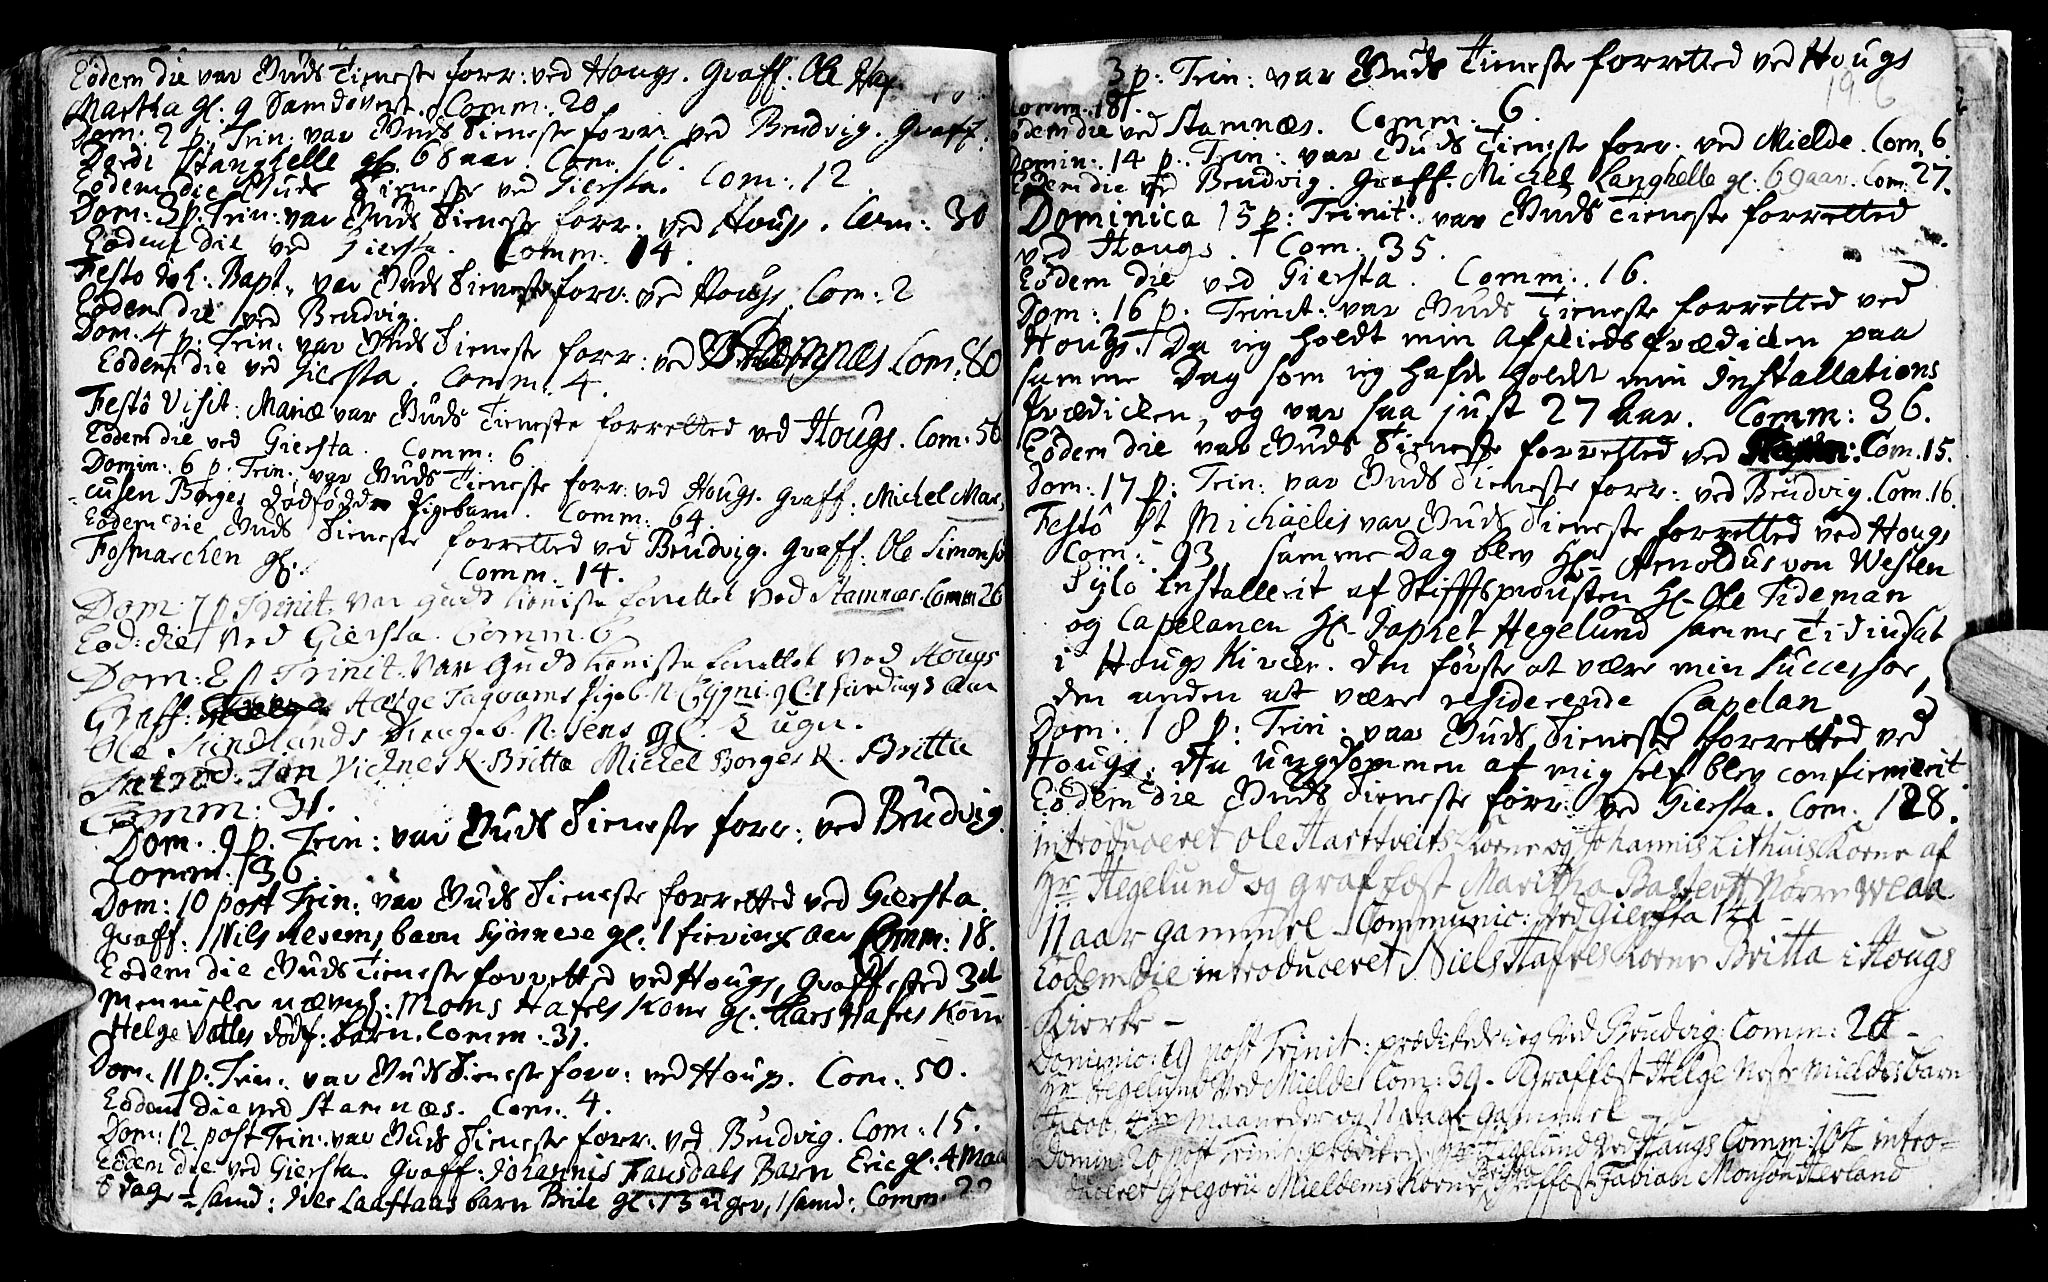 Eodem die var Guds Tieneste forr: ved Hougs. Graff: Ole
Martha gl: 9 Comm: 20.
Dom: 2 p: Trin: var Guds Tieneste forr: ved Brudvig. Graff:
Dordi Stanghelle gl. 68 aar. Com: 16.
Eodem die Guds Tieneste ved Giersta. Com: 12.
Dom: 3 p: Trin: var Guds Tieneste forr: ved Hougs. Com: 30
Eodem die ved Giersta. Comm: 14.
Festo Joh: Bapt: var Guds Tieneste forr: ved Hougs. Com: 2
Eodem die ved Brudvig.
Dom: 4 p: Trin: var Guds Tieneste forr: ved Stamnæs Com: 80
Eodem die ved Giersta. Comm: 4.
Festô Visit: Mariæ var Guds Tieneste forretted ved Hougs. Com: 56
Eodem die ved Giersta. Comm: 6
Domin: 6 p: Trin: var Guds Tieneste forr: ved Hougs. Graff: Michel Mar-
cusen Borges dødfødde Pigebarn. Comm: 64.
Eodem die Guds Tieneste forretted ved Brudvig. Graff: Ole Simons
Fosmarchen gl: Comm: 14.
Dom: 7 p Trinit: var Guds tieniste forrettet ved Stamnæs. Comm 26
Eod: die ved Giersta. Comm. 6
Dom: 8 p Trinit: var Guds tieniste forrettet ved Hougs
Graff: Hælge Taqvams Pigeb. N. gl. 1 fierding Aar
Ole Sundlands Drengeb. N: Jens gl. 5 ugu.
Introd: Jan Vichnes K. Britta Michel Borges K. Britta
Comm: 31.
Dom. 9 p. Trin: var Guds Tieneste forr: ved Brudvig.
Comm: 36.
Dom: 10 post Trin: var Guds Tieneste forretted ved Giersta.
Graff: Nils barn Synneve gl: 1 fiering Aar Comm: 18.
Eodem die Guds Tieneste forretted ved Hougs, Graffested 3de
Mennisker nævnl: Mons Hafres Kone gl: Lars Hafres Kone
Helge Vatles dødf: barn. Comm: 31.
Dom: 11 p: Trin: var Guds Tieneste forr: ved Hougs. Com: 50.
Eodem die ved Stamnæs. Com: 4.
Dom: 12 post Trin: var Guds Tieneste forr: ved Brudvig. Com: 15.
Eodem die ved Giersta. Graff: Johannis Fausdals Barn Eric gl: 4 Maa
8 dage samd: Iver Laastaas barn Brite gl: 13 uger, samd: Comm: 20
3 p: Trin: var Guds Tieneste forretted ved Hougs
196
Comm. 18.
Eodem die ved Stamnæs. Comm: 6.
Domin: 14 p: Trin: var Guds Tieneste forr: ved Mielde. Com: 6.
Eodem die ved Brudvig. Graff: Michel Langhelle gl: 69 aar. Com: 27.
Dominica 15 p: Trinit: var Guds Tieneste forretted
ved Hougs. Com: 35.
Eodem die ved Giersta. Comm: 16.
Dom: 16 p: Trinit: var Guds Tieneste forretted ved
Hougs. Da ieg holdt min Afskeeds prædicken paa
samme Dag som ieg hafde holdt min Installations
prædicken, og var saa just 27 Aar. Comm: 36.
Eodem die var Guds Tieneste forretted ved Com. 15.
Dom: 17 p: Trin: var Guds Tieneste forr: ved Brudvig. Com. 16
Festô St Michaëlis var Guds Tieneste forretted ved Hougs
Com: 93 samme Dag blev Hr. Arnoldus von Westen
Sylo installerit af Stiftsprousten Hr. Ole Tideman
og Capelanen Hr. Japhet Hegelund samme Tid indsat
i Hougs Kircke. Den første at være min Successor,
den anden at være residerende Capelan
Dom. 18 p: Trin: var Guds Tieneste forretted ved
Hougs. da Ungdommen af mig self blev confirmerit
Eodem die Guds Tieneste forr: ved Giersta. Com: 128.
introduceret Ole Hartveits Koene og Johannis Lithuus Koene af
Hr Hegelund og graffæst Maritha Nørre
11 aar gammel - Communic: ved Giersta 121 -
Eodem die introduceret Niels Hafres Koene Britta i Hougs
Kierke -
Dominic: 19 post Trinit: prædikede ieg ved Brudvig: Comm: 20 -
Hr Hegelund ved Mielde Com: 39. Graffæst Helge Mieldes barn
Jacob 4 Maaneder og gammel -
Domin: 20 post Trinit: prædikede Hr Hegelund ved Haugs Comm: 104 intro-
duceret Gregorii Mieldems Koene Britta, graffæst Fabian Monsøn Herland